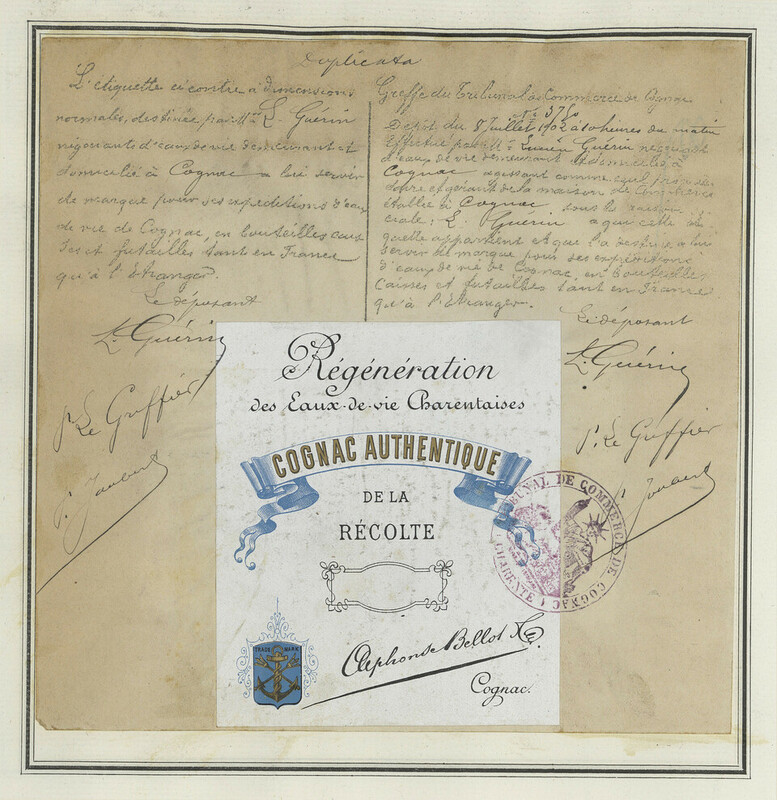 Duplicata
L'étiquette ci contre à dimensions
normales, destinée par Mr L. Guérin
négociants d'eaux de vie demeurant et
domicilié à Cognac a lui servir
de marque pour ses expéditions d'eaux
de vie de Cognac, en bouteilles cais
ses et futailles tant en France
qu'à l'étranger.
Le déposant
L. Guérin
p. Le Greffier
P. Joubert
Greffe du Tribunal de Commerce de Cognac
No 375
Dépôt du 8 Juillet 1902 à 10 heures du matin
Effectué par Mr Lucien Guérin négociant
d'eaux de vie demeurant et domicilié à
Cognac agissant comme seul proprié
taire et gérant de la maison de Commerce
établie à Cognac sous la raison
ciale: L. Guérin a qui cette éti
quette appartient et qui l'a destine a lui
servir de marque pour ses expéditions
d'eaux de vie de Cognac, en bouteilles
caisses et futailles tant en France
qu'à l'étranger.
Le déposant
L. Guérin
p. Le Greffier
P. Joubert
Régénération
des Eaux-de-vie Charentaises
COGNAC AUTHENTIQUE
DE LA
RÉCOLTE
TRADE MARK
Alphonse Bellot & Co
Cognac.
TRIBUNAL DE COMMERCE DE COGNAC (CHARENTE)